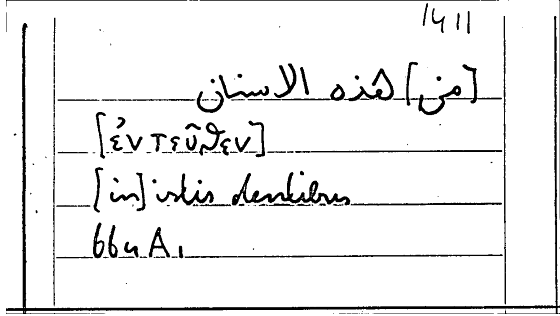 1411
[من] هذه الاسنان
[ἐντεῦθεν]
[in] istis dentibus
664 A,